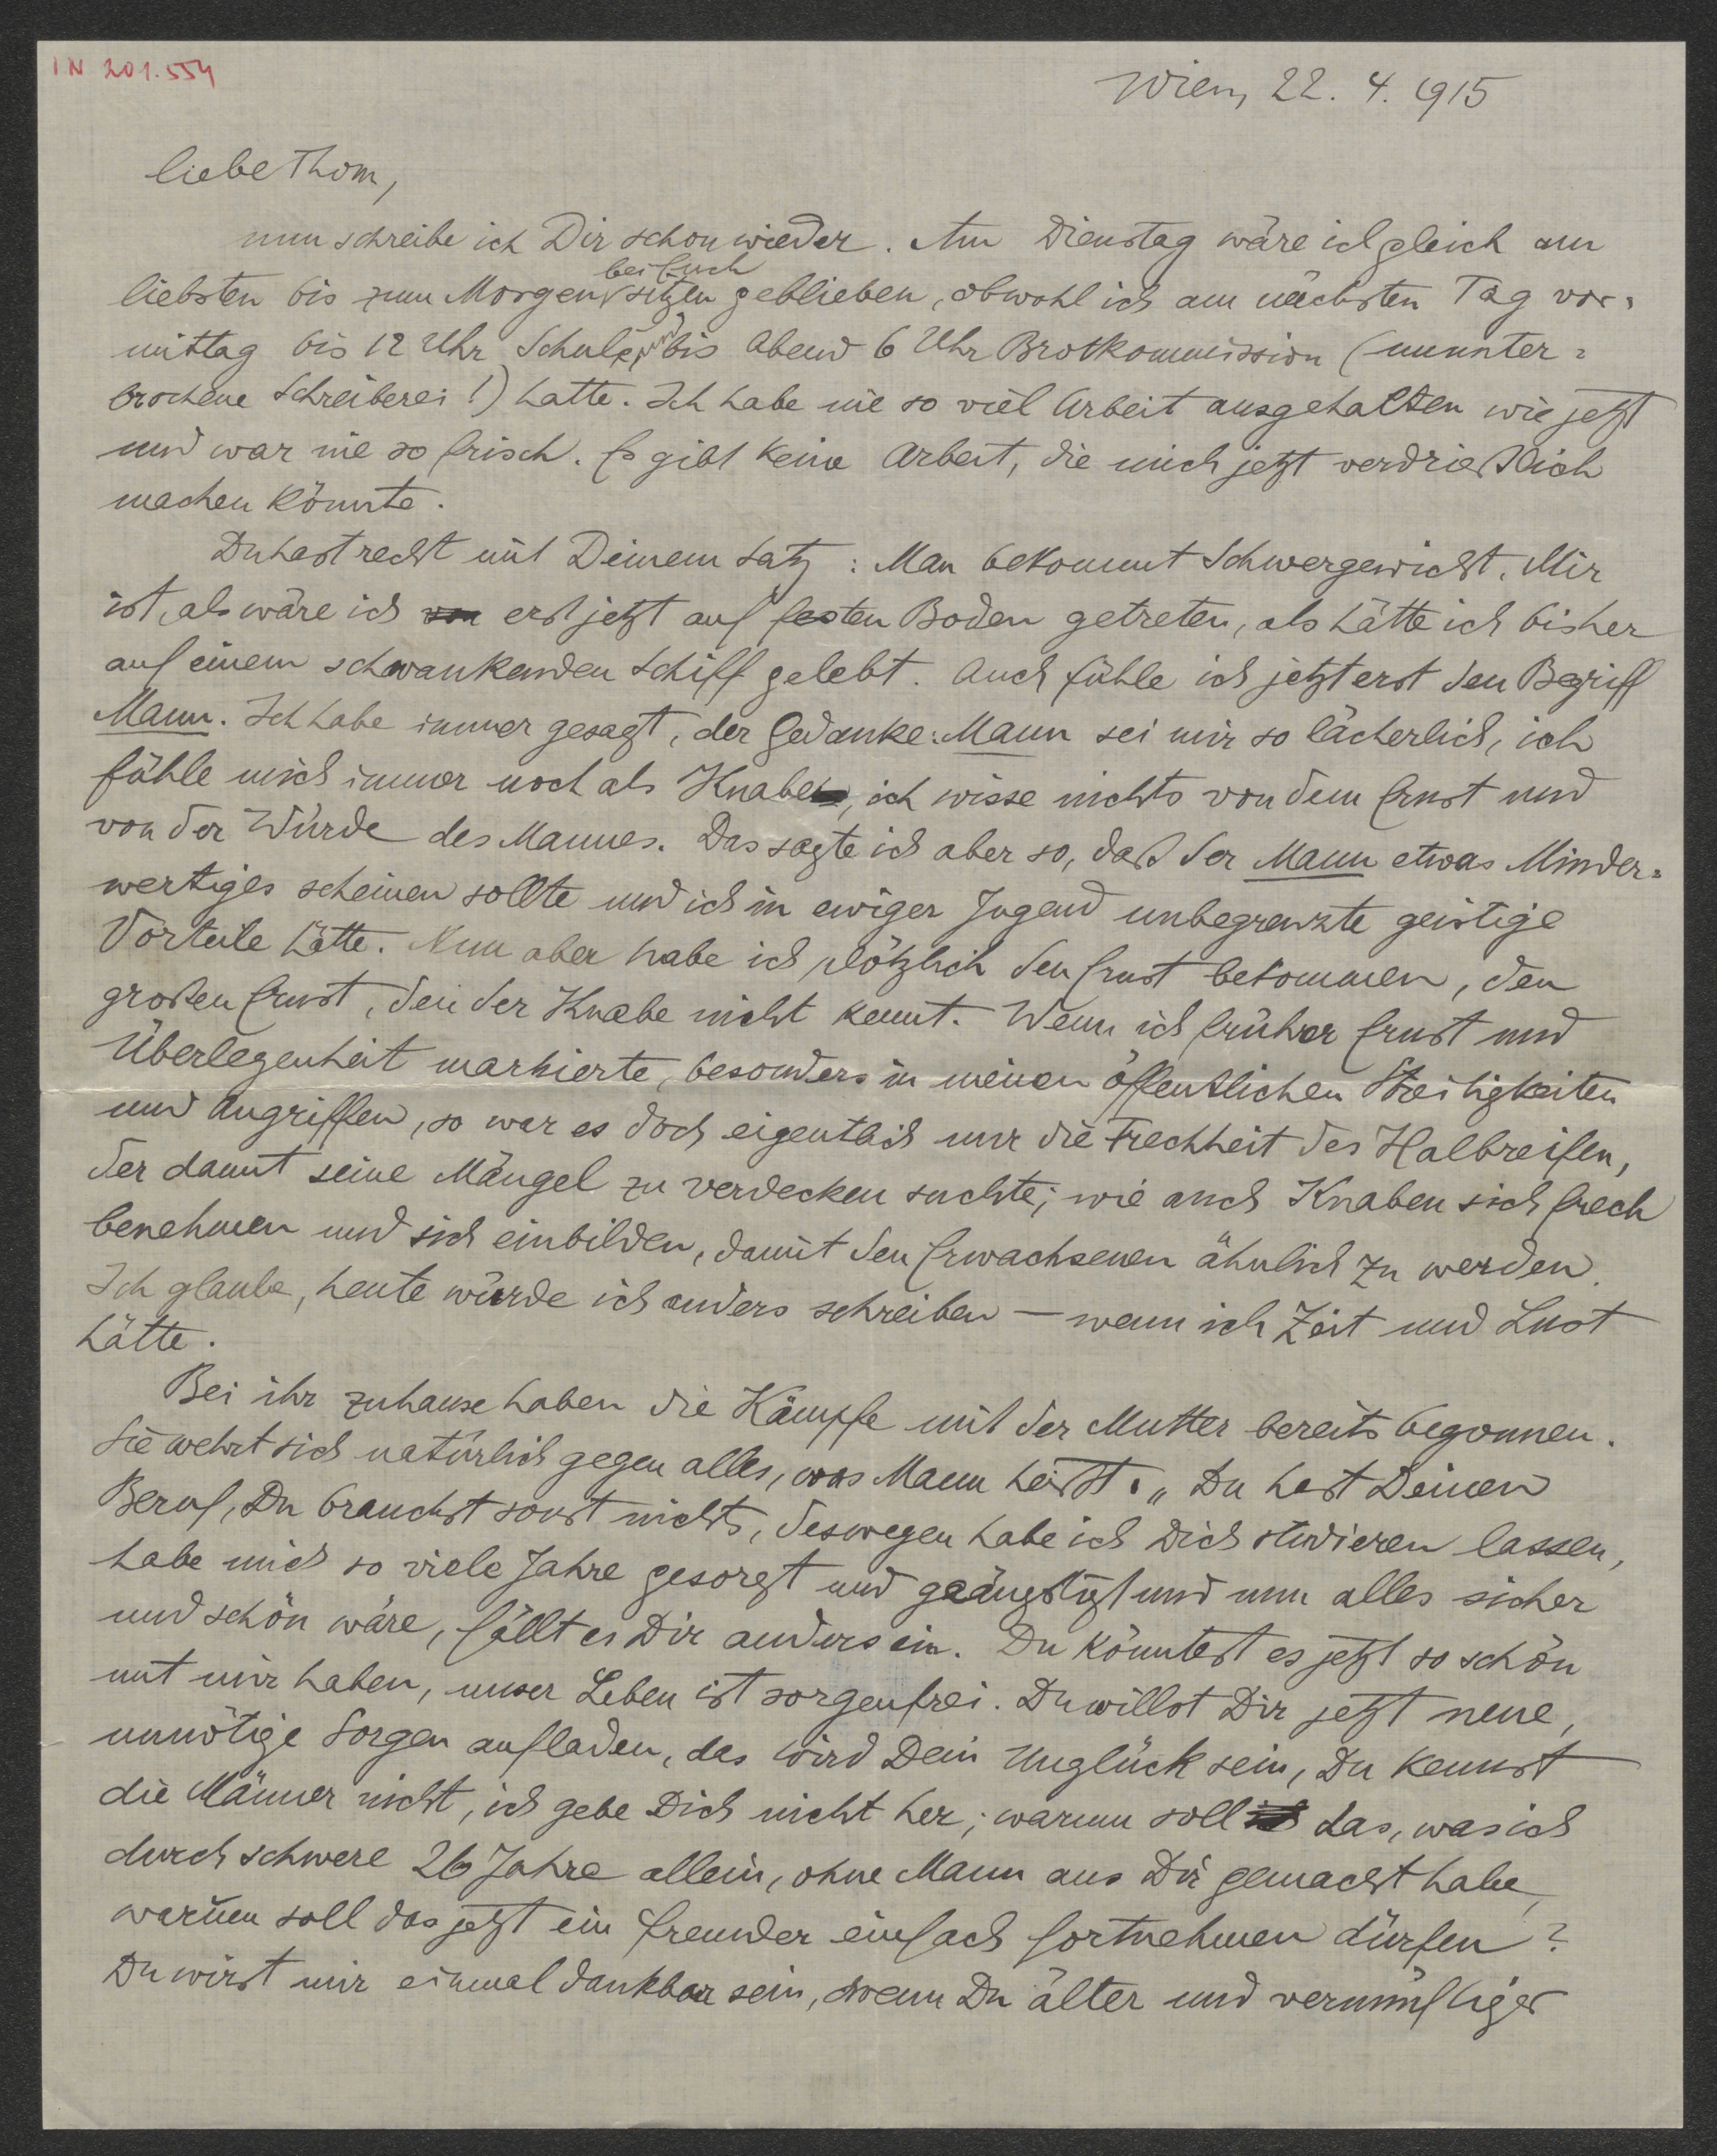 IN 201.554
Wien, 22. 4. 1915
liebe Thom,
nun schreibe ich Dir schon wieder. Am Dienstag wäre ich gleich am
bei Euch
liebsten bis zum Morgen sitzen geblieben, obwohl ich am nächsten Tag vor=
mittag bis 12 Uhr Schule und bis Abend 6 Uhr Brotkommission (ununter=
brochene Schreiberei!) hatte. Ich habe nie so viel Arbeit ausgehalten wie jetzt
und war nie so frisch. Es gibt keine Arbeit, die mich jetzt verdrießlich
machen könnte.
Du hast recht mit Deinem Satz: Man bekommt Schwergewicht. Mir
ist, als wäre ich erst jetzt auf festen Boden getreten, als hätte ich bisher
auf einem schwankenden Schiff gelebt. Auch fühle ich jetzt erst den Begriff
Mann. Ich habe immer gesagt, der Gedanke: Mann sei mir so lächerlich, ich
fühle mich immer noch als Knabe, ich wisse nichts von dem Ernst und
von der Würde des Mannes. Das sagte ich aber so, daß der Mann etwas Minder=
wertiges scheinen sollte und ich in ewiger Jugend unbegrenzte geistige
Vorteile hätte. Nun aber habe ich plötzlich den Ernst bekommen, den
großen Ernst, den der Knabe nicht kennt. Wenn ich früher Ernst und
Überlegenheit markierte, besonders in meinen öffentlichen Streitigkeiten
und Angriffen, so war es doch eigentlich nur die Frechheit des Halbreifen,
der damit seine Mängel zu verdecken suchte; wie auch Knaben sich frech
benehmen und sich einbilden, damit den Erwachsenen ähnlich zu werden.
Ich glaube, heute würde ich anders schreiben — wenn ich Zeit und Lust
hätte.
Bei ihr zuhause haben die Kämpfe mit der Mutter bereits begonnen.
Sie wehrt sich natürlich gegen alles, was Mann heißt. „Du hast Deinen
Beruf, Du brauchst sonst nichts, deswegen habe ich Dich studieren lassen,
habe mich so viele Jahre gesorgt und geängstigt und nun alles sicher
und schön wäre, fällt es Dir anders ein. Du könntest es jetzt so schön
mit mir haben, unser Leben ist sorgenfrei. Du willst Dir jetzt neue,
unnötige Sorgen aufladen, das wird Dein Unglück sein, Du kennst
die Männer nicht, ich gebe Dich nicht her; warum soll das, was ich
durch schwere 26 Jahre allein, ohne Mann aus Dir gemacht habe,
warum soll das jetzt ein Fremder einfach fortnehmen dürfen?
Du wirst mir einmal dankbar sein, wenn Du älter und vernünftiger